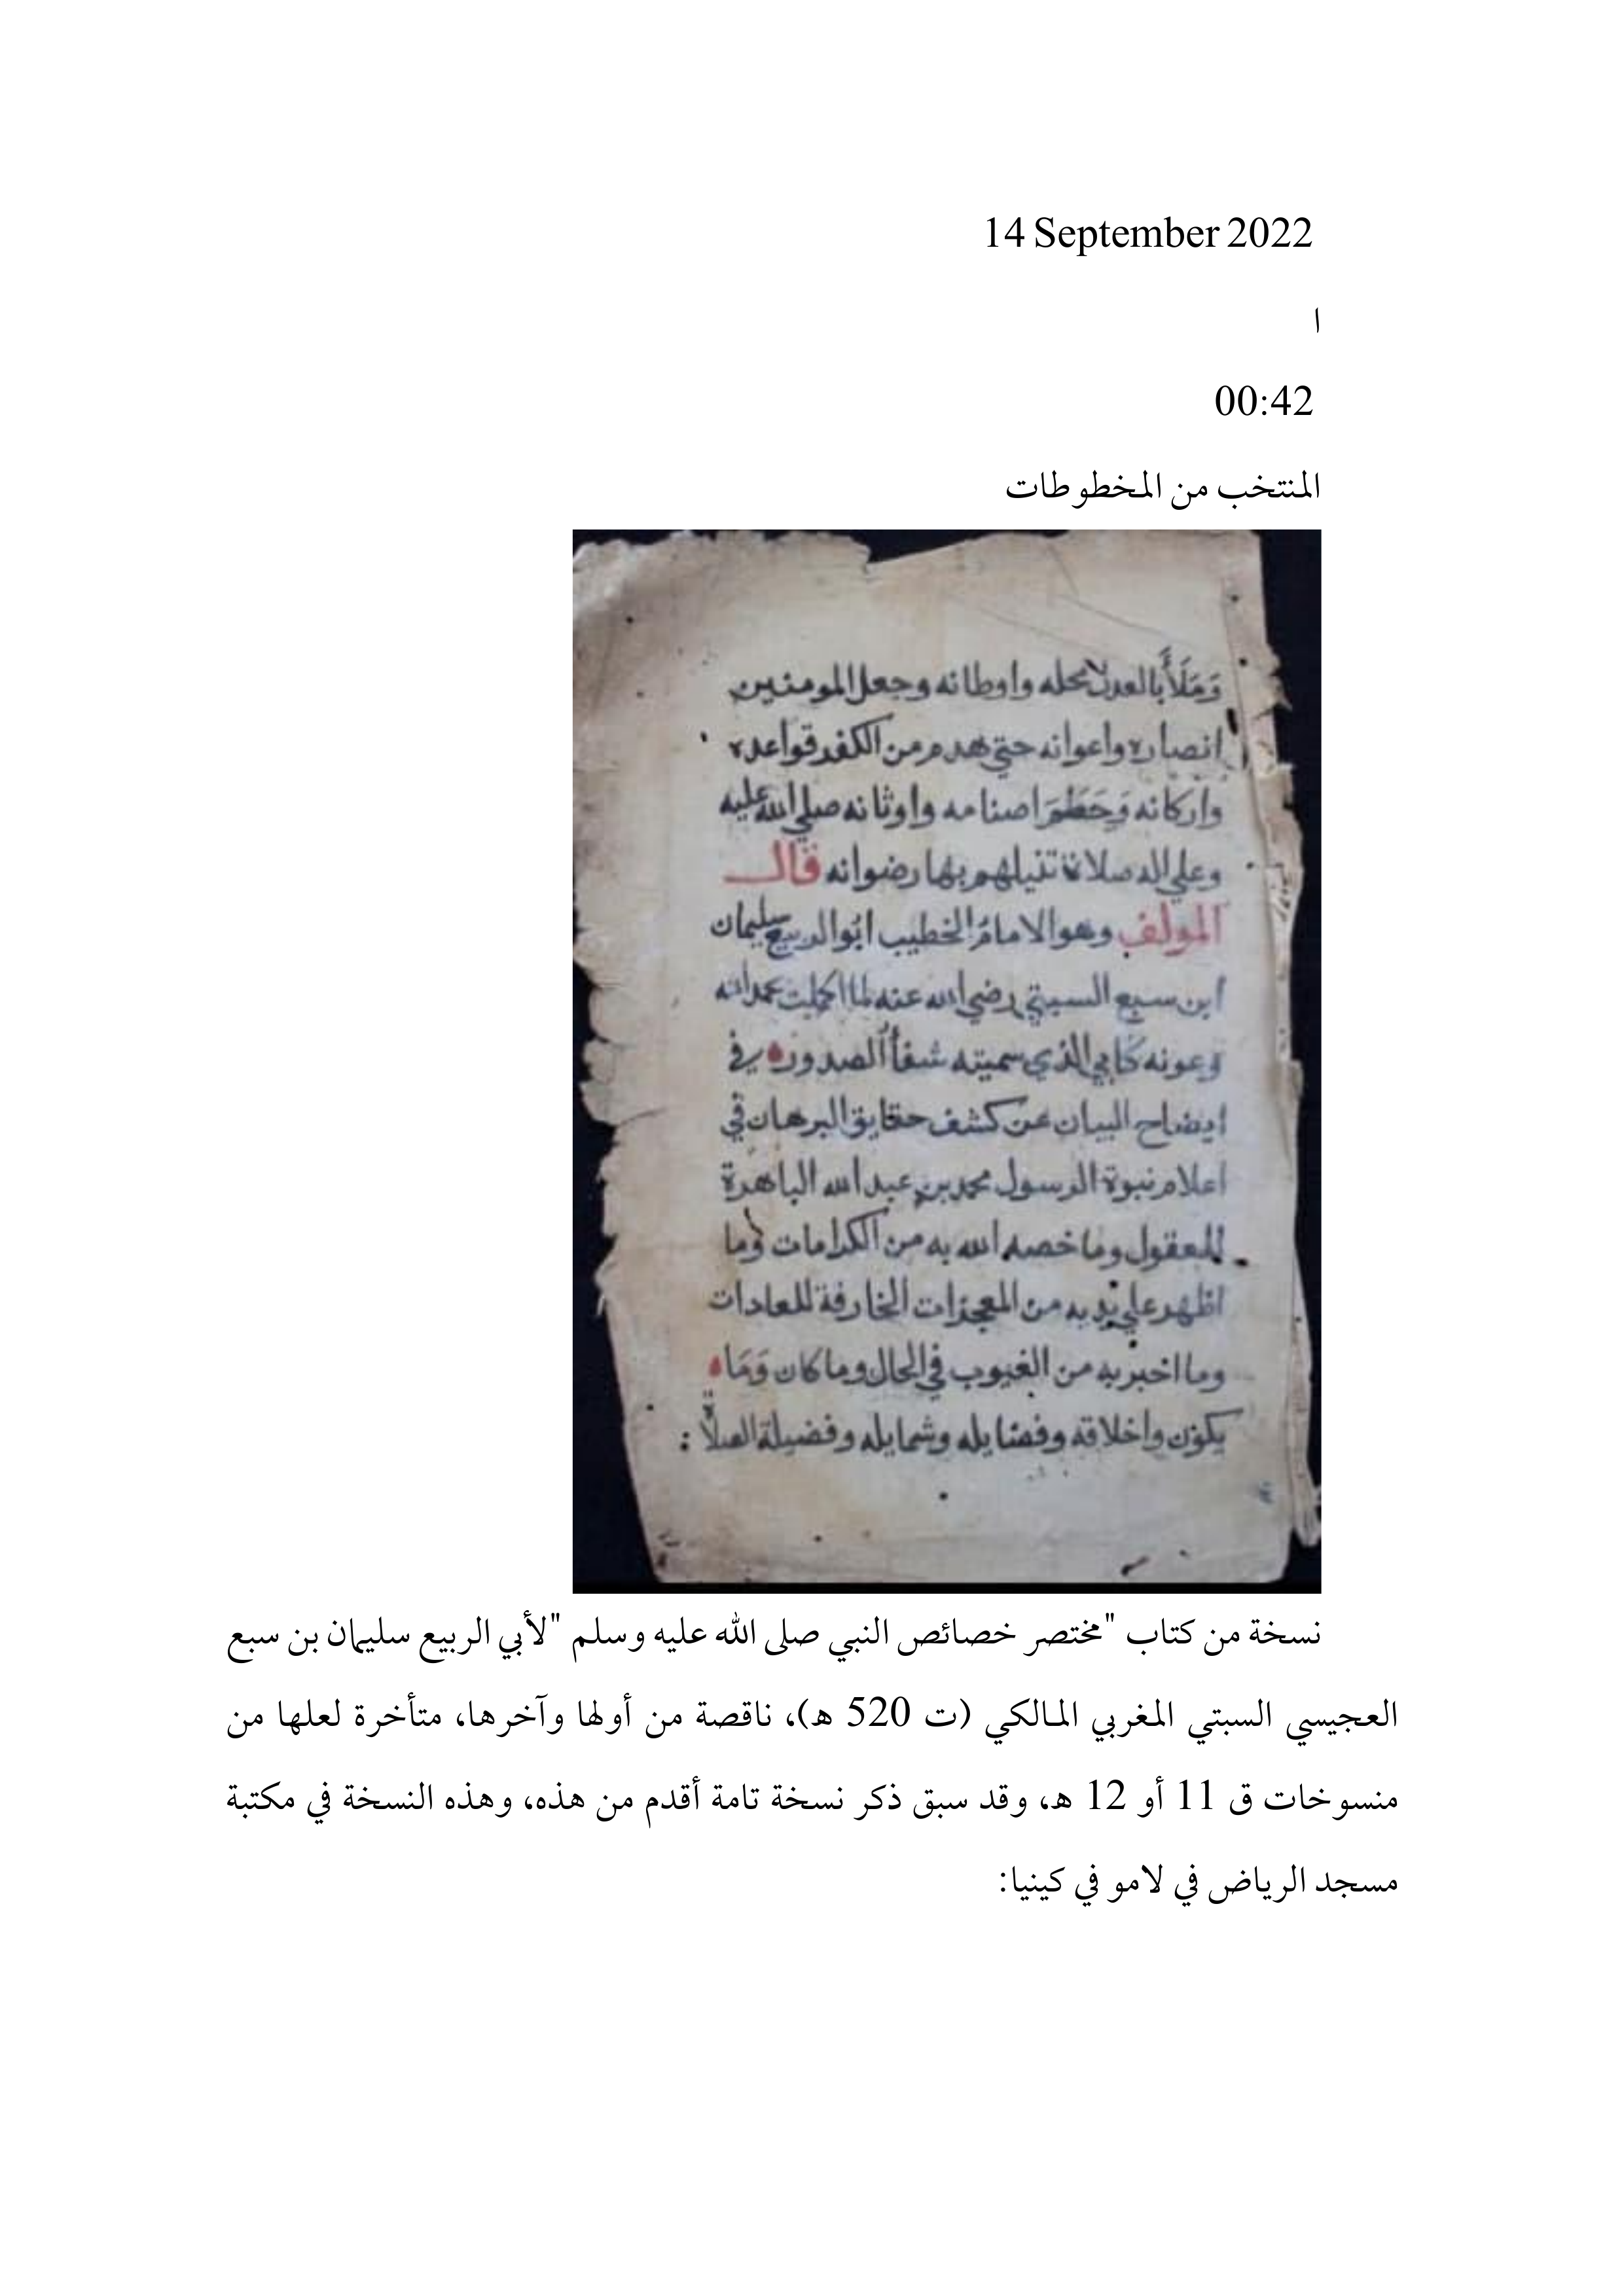 14 September 2022
ا
00:42
المنتخب من المخطوطات
وَمَلَأَ بالعدل محله واوطانه وجعل المومنين
انصاره واعوانه حتي هدم من الكفر قواعده
واركانه وَحَطَمَ اصنامه واوثانه صلي الله عليه
وعلي اله صلاة تنيلهم بها رضوانه قال
المولف وهو الامام الخطيب ابو الربيع سليمان
ابن سبع السبتي رضي الله عنه لما اكملت بحمد الله
وعونه كتابي الذي سميته شفأ الصدور في
ايضاح البيان عن كشف حقايق البرهان في
اعلام نبوة الرسول محمد بن عبد الله الباهرة
للعقول وما خصه الله به من الكرامات وما
اظهر علي يديه من المعجزات الخارقة للعادات
وما اخبر به من الغيوب في الحال وما كان وَمَا
يكون واخلاقه وفضايله وشمايله وفضيلة الصلاة :
نسخة من كتاب "مختصر خصائص النبي صلى الله عليه وسلم "لأبي الربيع سليمان بن سبع
العجيسي السبتي المغربي المالكي (ت 520 هـ)، ناقصة من أولها وآخرها، متأخرة لعلها من
منسوخات ق 11 أو 12 هـ، وقد سبق ذكر نسخة تامة أقدم من هذه، وهذه النسخة في مكتبة
مسجد الرياض في لامو في كينيا: